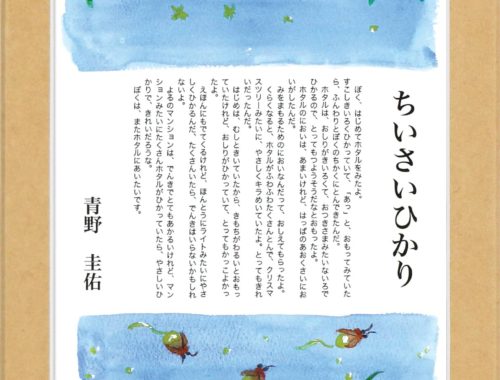 ちいさいひかり
ぼく、はじめてホタルをみたよ。
すこしきいろくひかっていて、「あっ」と、おもってみていた
ら、ふんわりとぼくのちかくにとんできたんだ。
ホタルは、おしりがきいろくて、おつきさまみたいないろで
ひかるので、とってもつよそうだなとおもったよ。
ホタルのにおいは、あまいけれど、はっぱのあおくさいにお
いがしたんだ。
みをまもるためのにおいなんだって、おしえてもらったよ。
くらくなると、ホタルがふわふわたくさんとんで、クリスマ
スツリーみたいに、やさしくキラめいていたよ。とってもきれ
いだったんだ。
はじめは、むしときいていたから、きもちがわるいとおもっ
ていたけれど、おしりがひかっていて、とってもかっこよかっ
たよ。
えほんにもでてくるけれど、ほんとうにライトみたいにやさ
しくひかるんだ、たくさんいたら、でんきはいらないかもしれ
ないよ。
よるのマンションは、でんきでとてもあかるいけれど、マン
ションみたいにたくさんホタルがひかっていたら、やさしいひ
かりで、きれいだろうな。
ぼくは、またホタルにあいたいです。
青野 圭佑